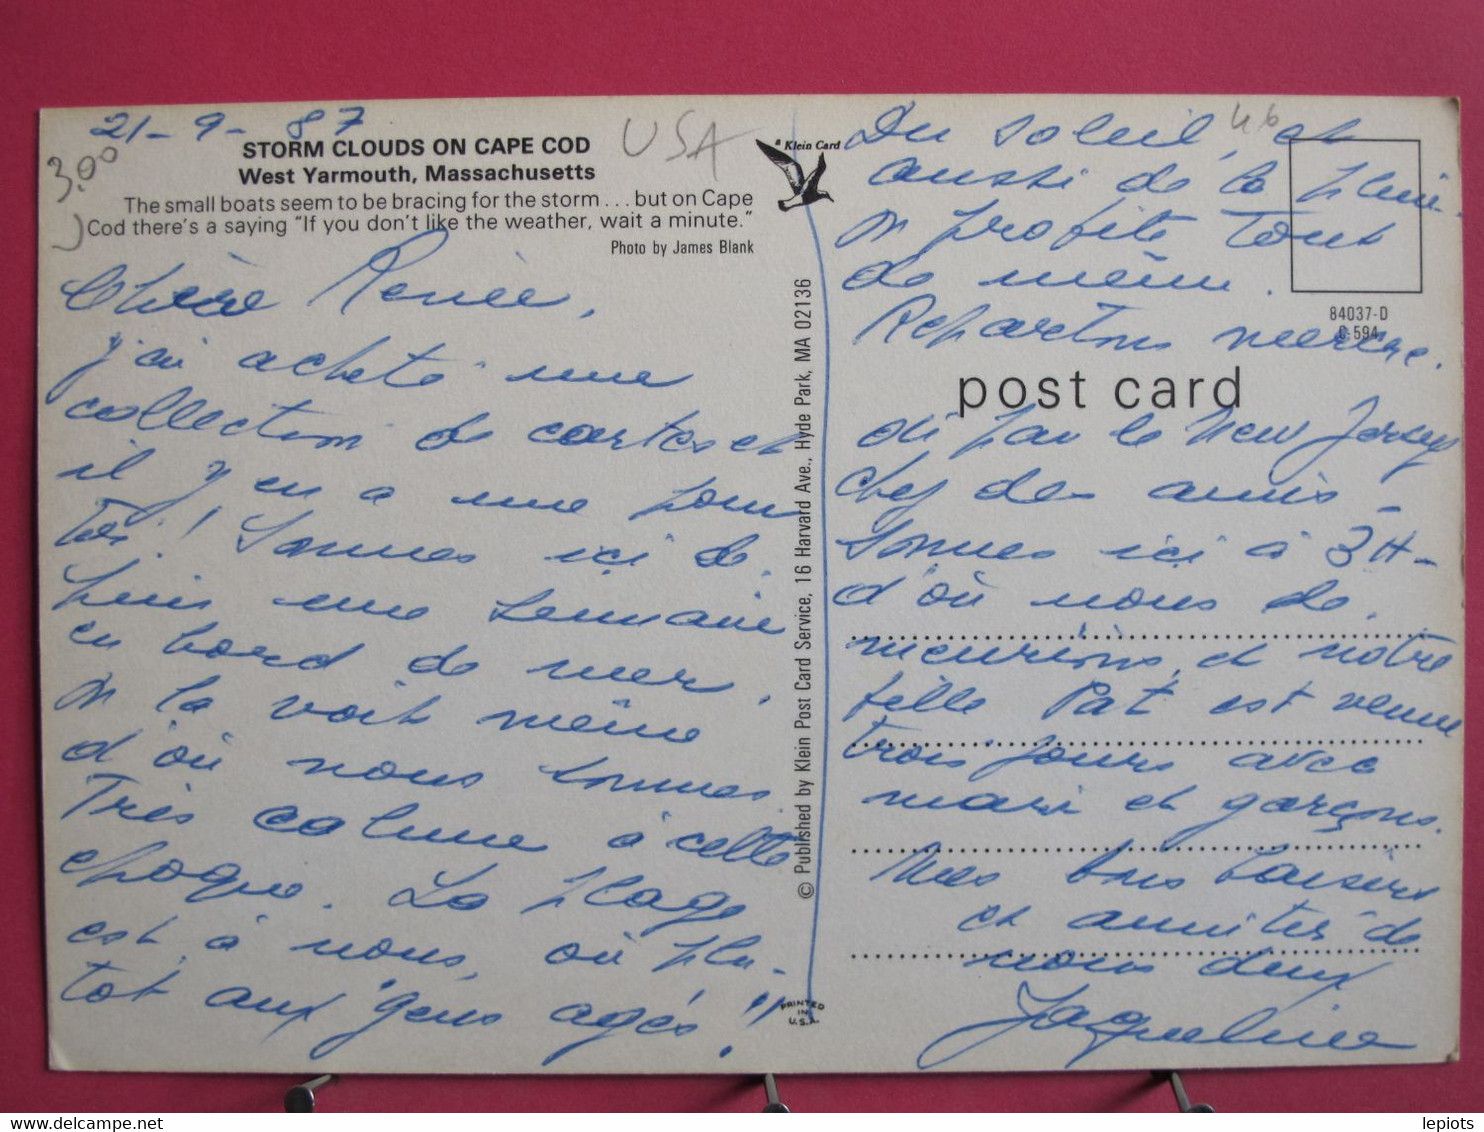 21-9-87
STORM CLOUDS ON CAPE COD
West Yarmouth, Massachusetts
The small boats seem to be bracing for the storm . . . but on Cape
Cod there's a saying "If you don't like the weather, wait a minute."
Photo by James Blank
3.00
USA
46
a Klein Card
Chère Renée,
j'ai acheté une
collection de cartes et
il y en a une pour
toi! Sommes ici de-
puis une semaine
en bord de mer.
On la voit même
d'où nous sommes.
Très calme à cette
époque. La plage
est à nous, ou plu-
tot aux "gens agés"!
© Published by Klein Post Card Service, 16 Harvard Ave., Hyde Park, MA 02136
PRINTED
IN
U.S.A.
Du soleil, et
aussi de la pluie.
On profite tout
de même.
Repartons mercre-
di par le New Jersey
chez des amis -
Sommes ici à 3H-
d'où nous de-
meurions, et notre
fille Pat est venue
trois jours avec
mari et garçons.
Mes bons baisers
et amitiés de
nous deux
Jaqueline
84037-D
C-594
post card
delcampe.net
lepiots